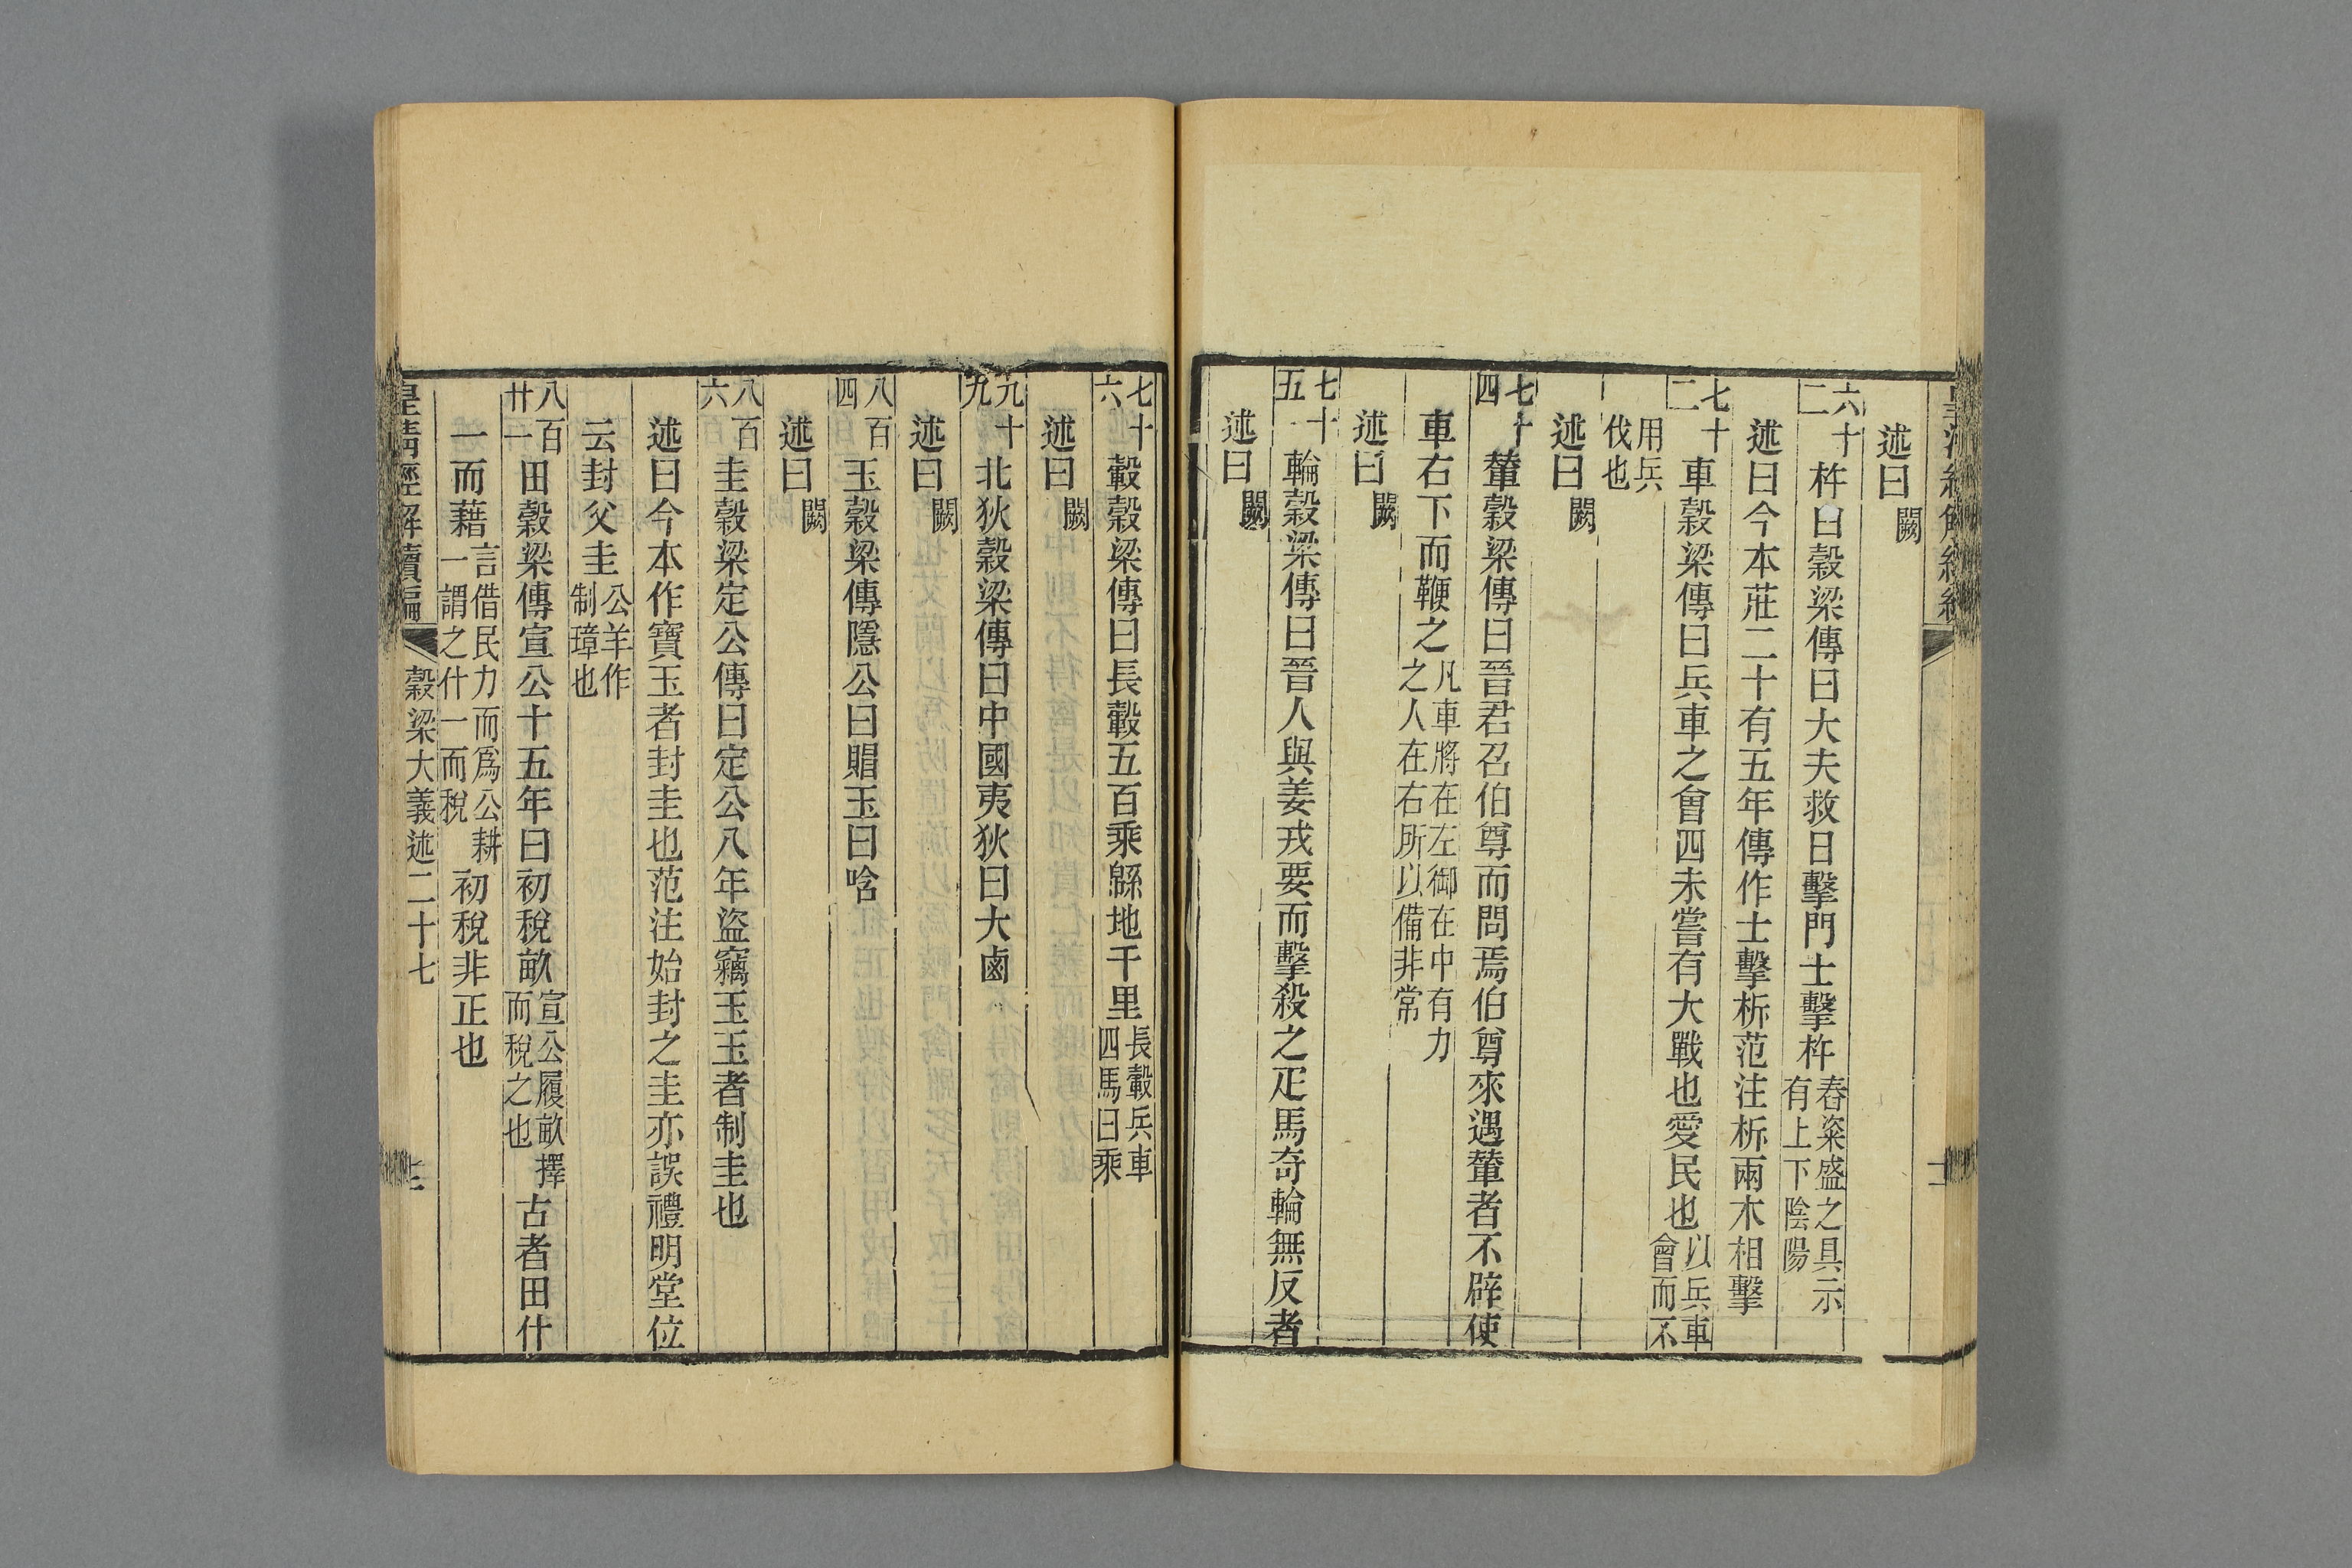 述曰闕
六十二杵曰穀梁傳曰大夫救日擊門士擊杵舂粢盛之具示有上下陰陽
述曰今本莊二十有五年傳作士擊柝范注柝兩木相擊
七十二車穀梁傳曰兵車之會四未嘗有大戰也愛民也以兵車會而不
用兵伐也
述曰闕
七十四輦穀梁傳曰晉君召伯尊而問焉伯尊來遇輦者不辟使
車右下而鞭之凡車將在左御在中有力之人在右所以備非常
述曰闕
七十五輪穀梁傳曰晉人與姜戎要而擊殺之疋馬奇輪無反者
述曰闕
七十六轂穀梁傳曰長轂五百乘緜地千里長轂兵車四馬曰乘
述曰闕
九十九北狄穀梁傳曰中國夷狄曰大鹵
述曰闕
八百四玉穀梁傳隱公曰賵玉曰唅
述曰闕
八百六圭穀梁定公傳曰定公八年盜竊玉玉者制圭也
述曰今本作寶玉者封圭也范注始封之圭亦誤禮明堂位
云封父圭公羊作制璋也
八百廿一田穀梁傳宣公十五年曰初稅畝宣公履畝擇而稅之也古者田什
一而藉言借民力而爲公耕一謂之什一而稅初稅非正也
皇清經解續編 穀梁大義述二十七 十二